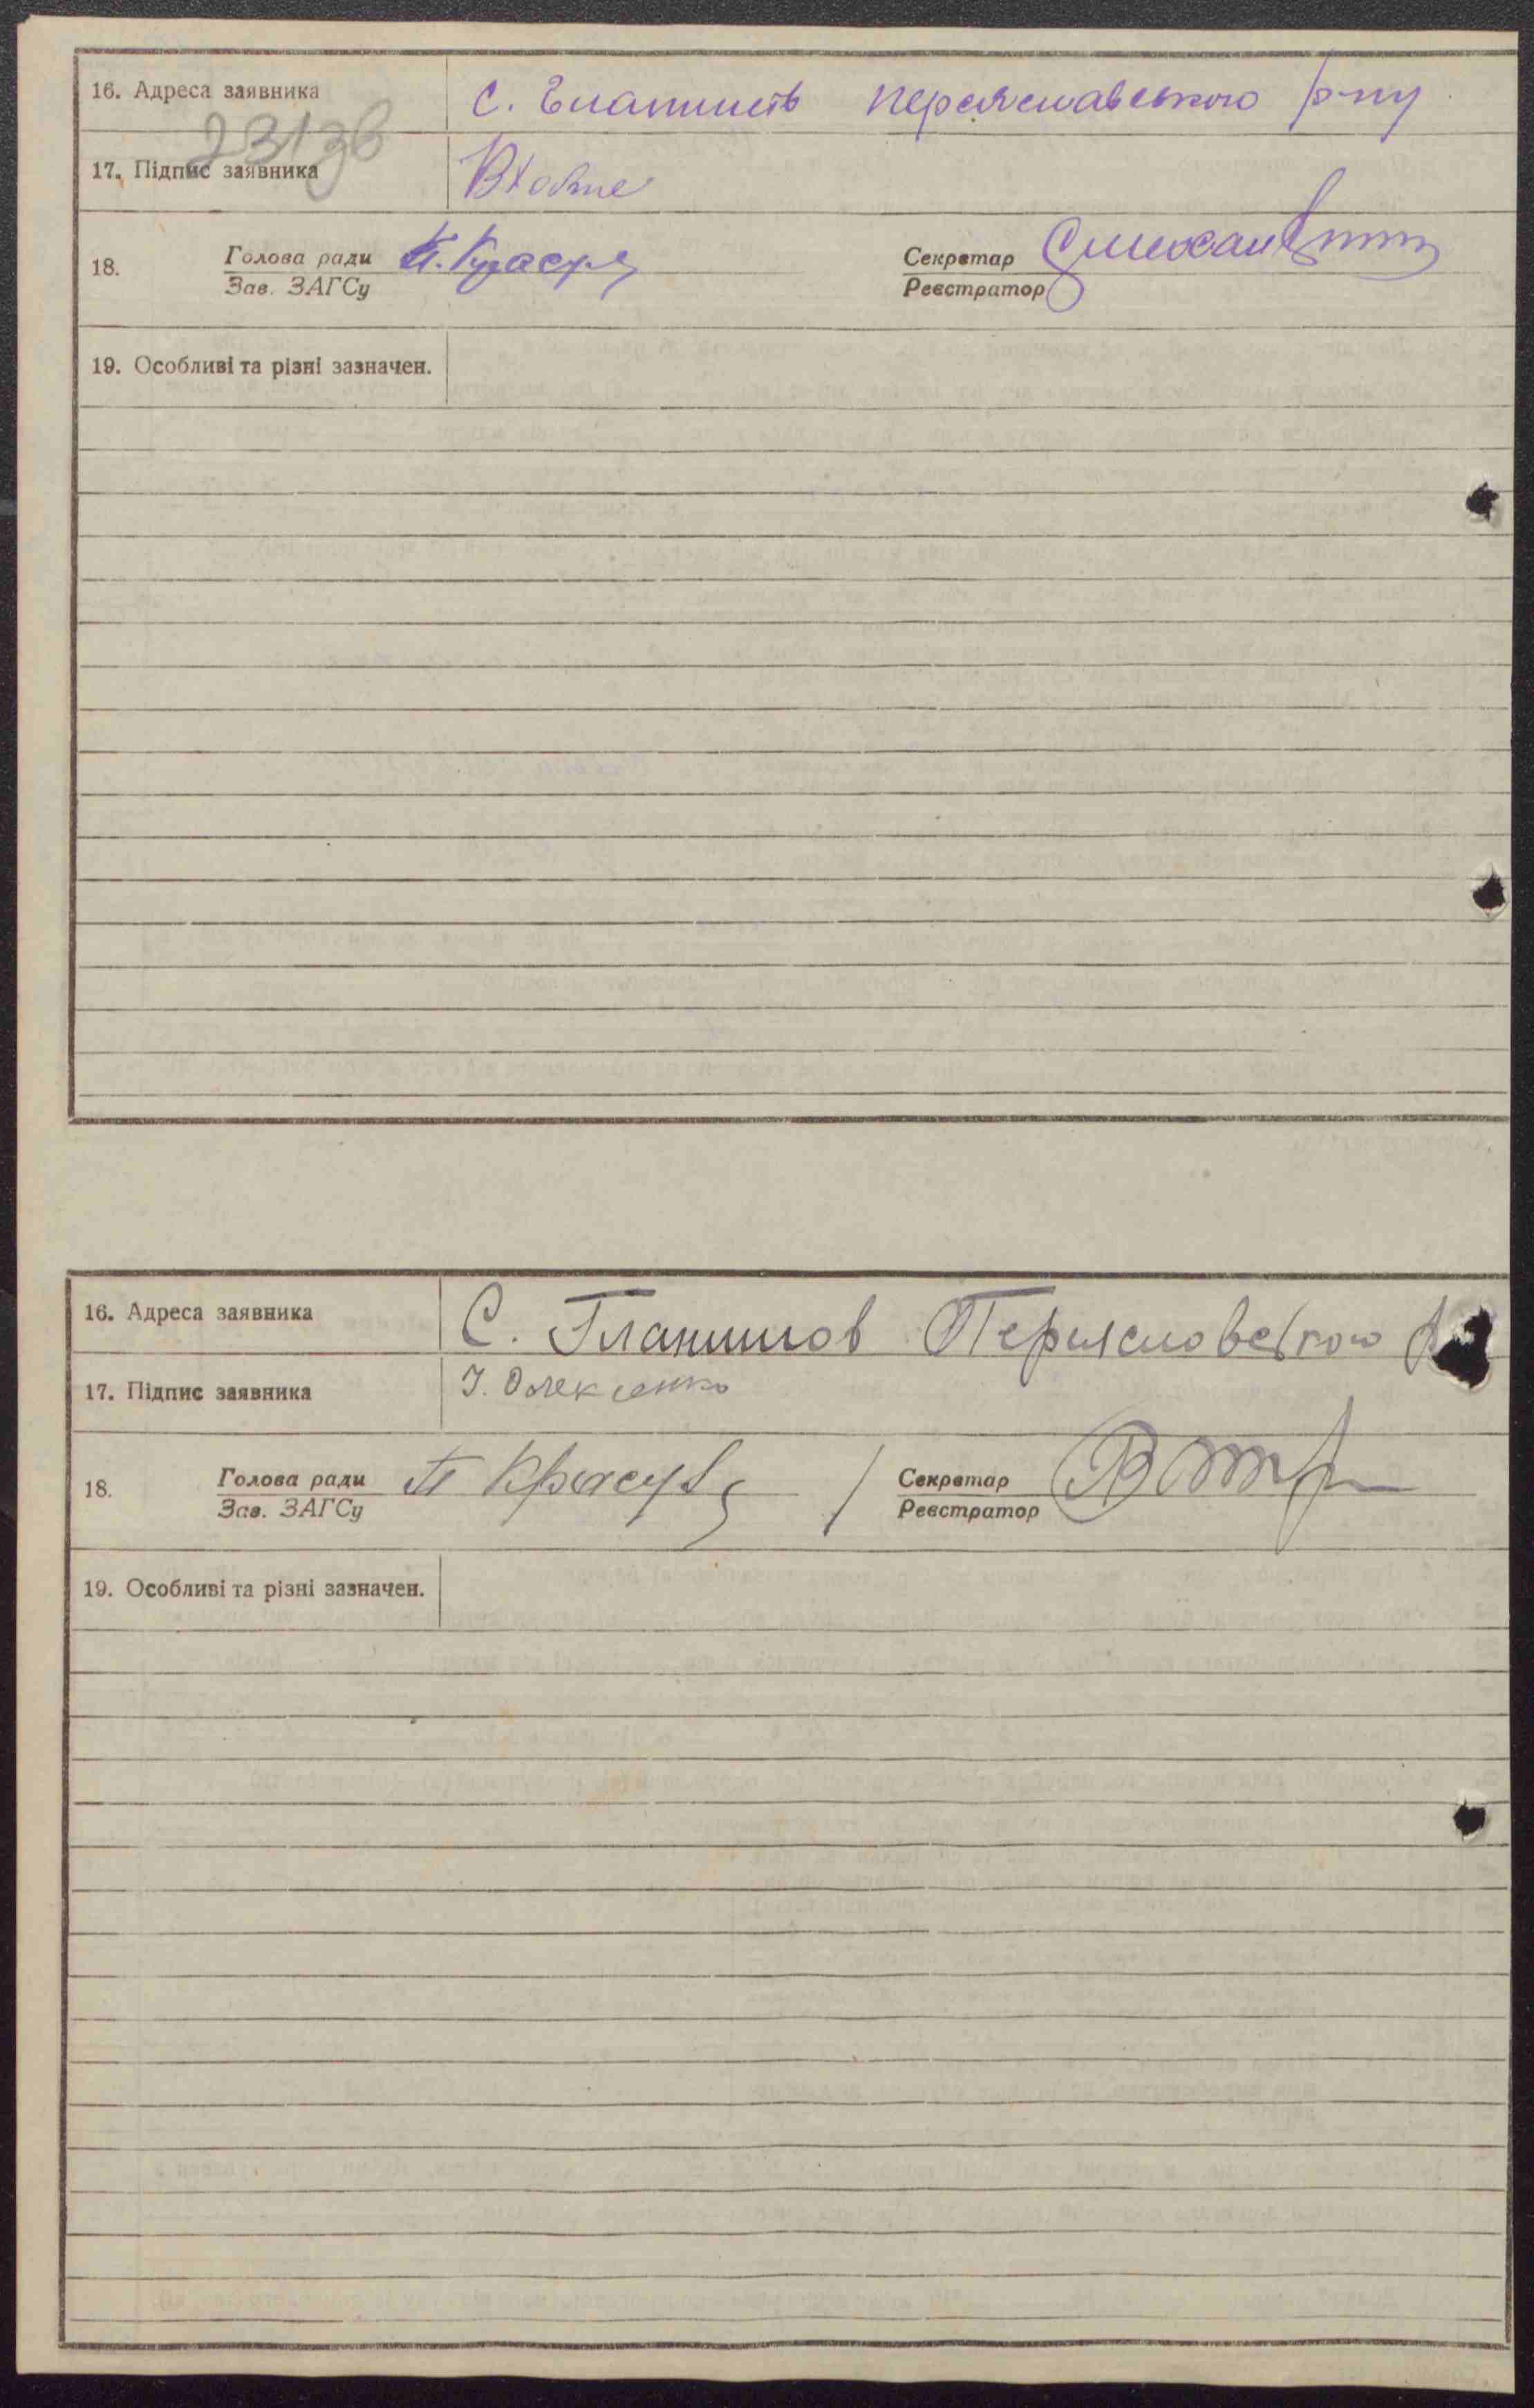 16. Адреса заявника с. Гланишів Переяславського р-ну
23136
17. Підпис заявника
18. Голова ради П. Красу Секретар
Зав. ЗАГСу Реєстратор
19. Особливі та різні зазначен.
16. Адреса заявника С. Гланишов Переясловського р
17. Підпис заявника І. Олексенко
18. Голова ради П Красу Секретар
Зав. ЗАГСу Реєстратор
19. Особливі та різні зазначен.